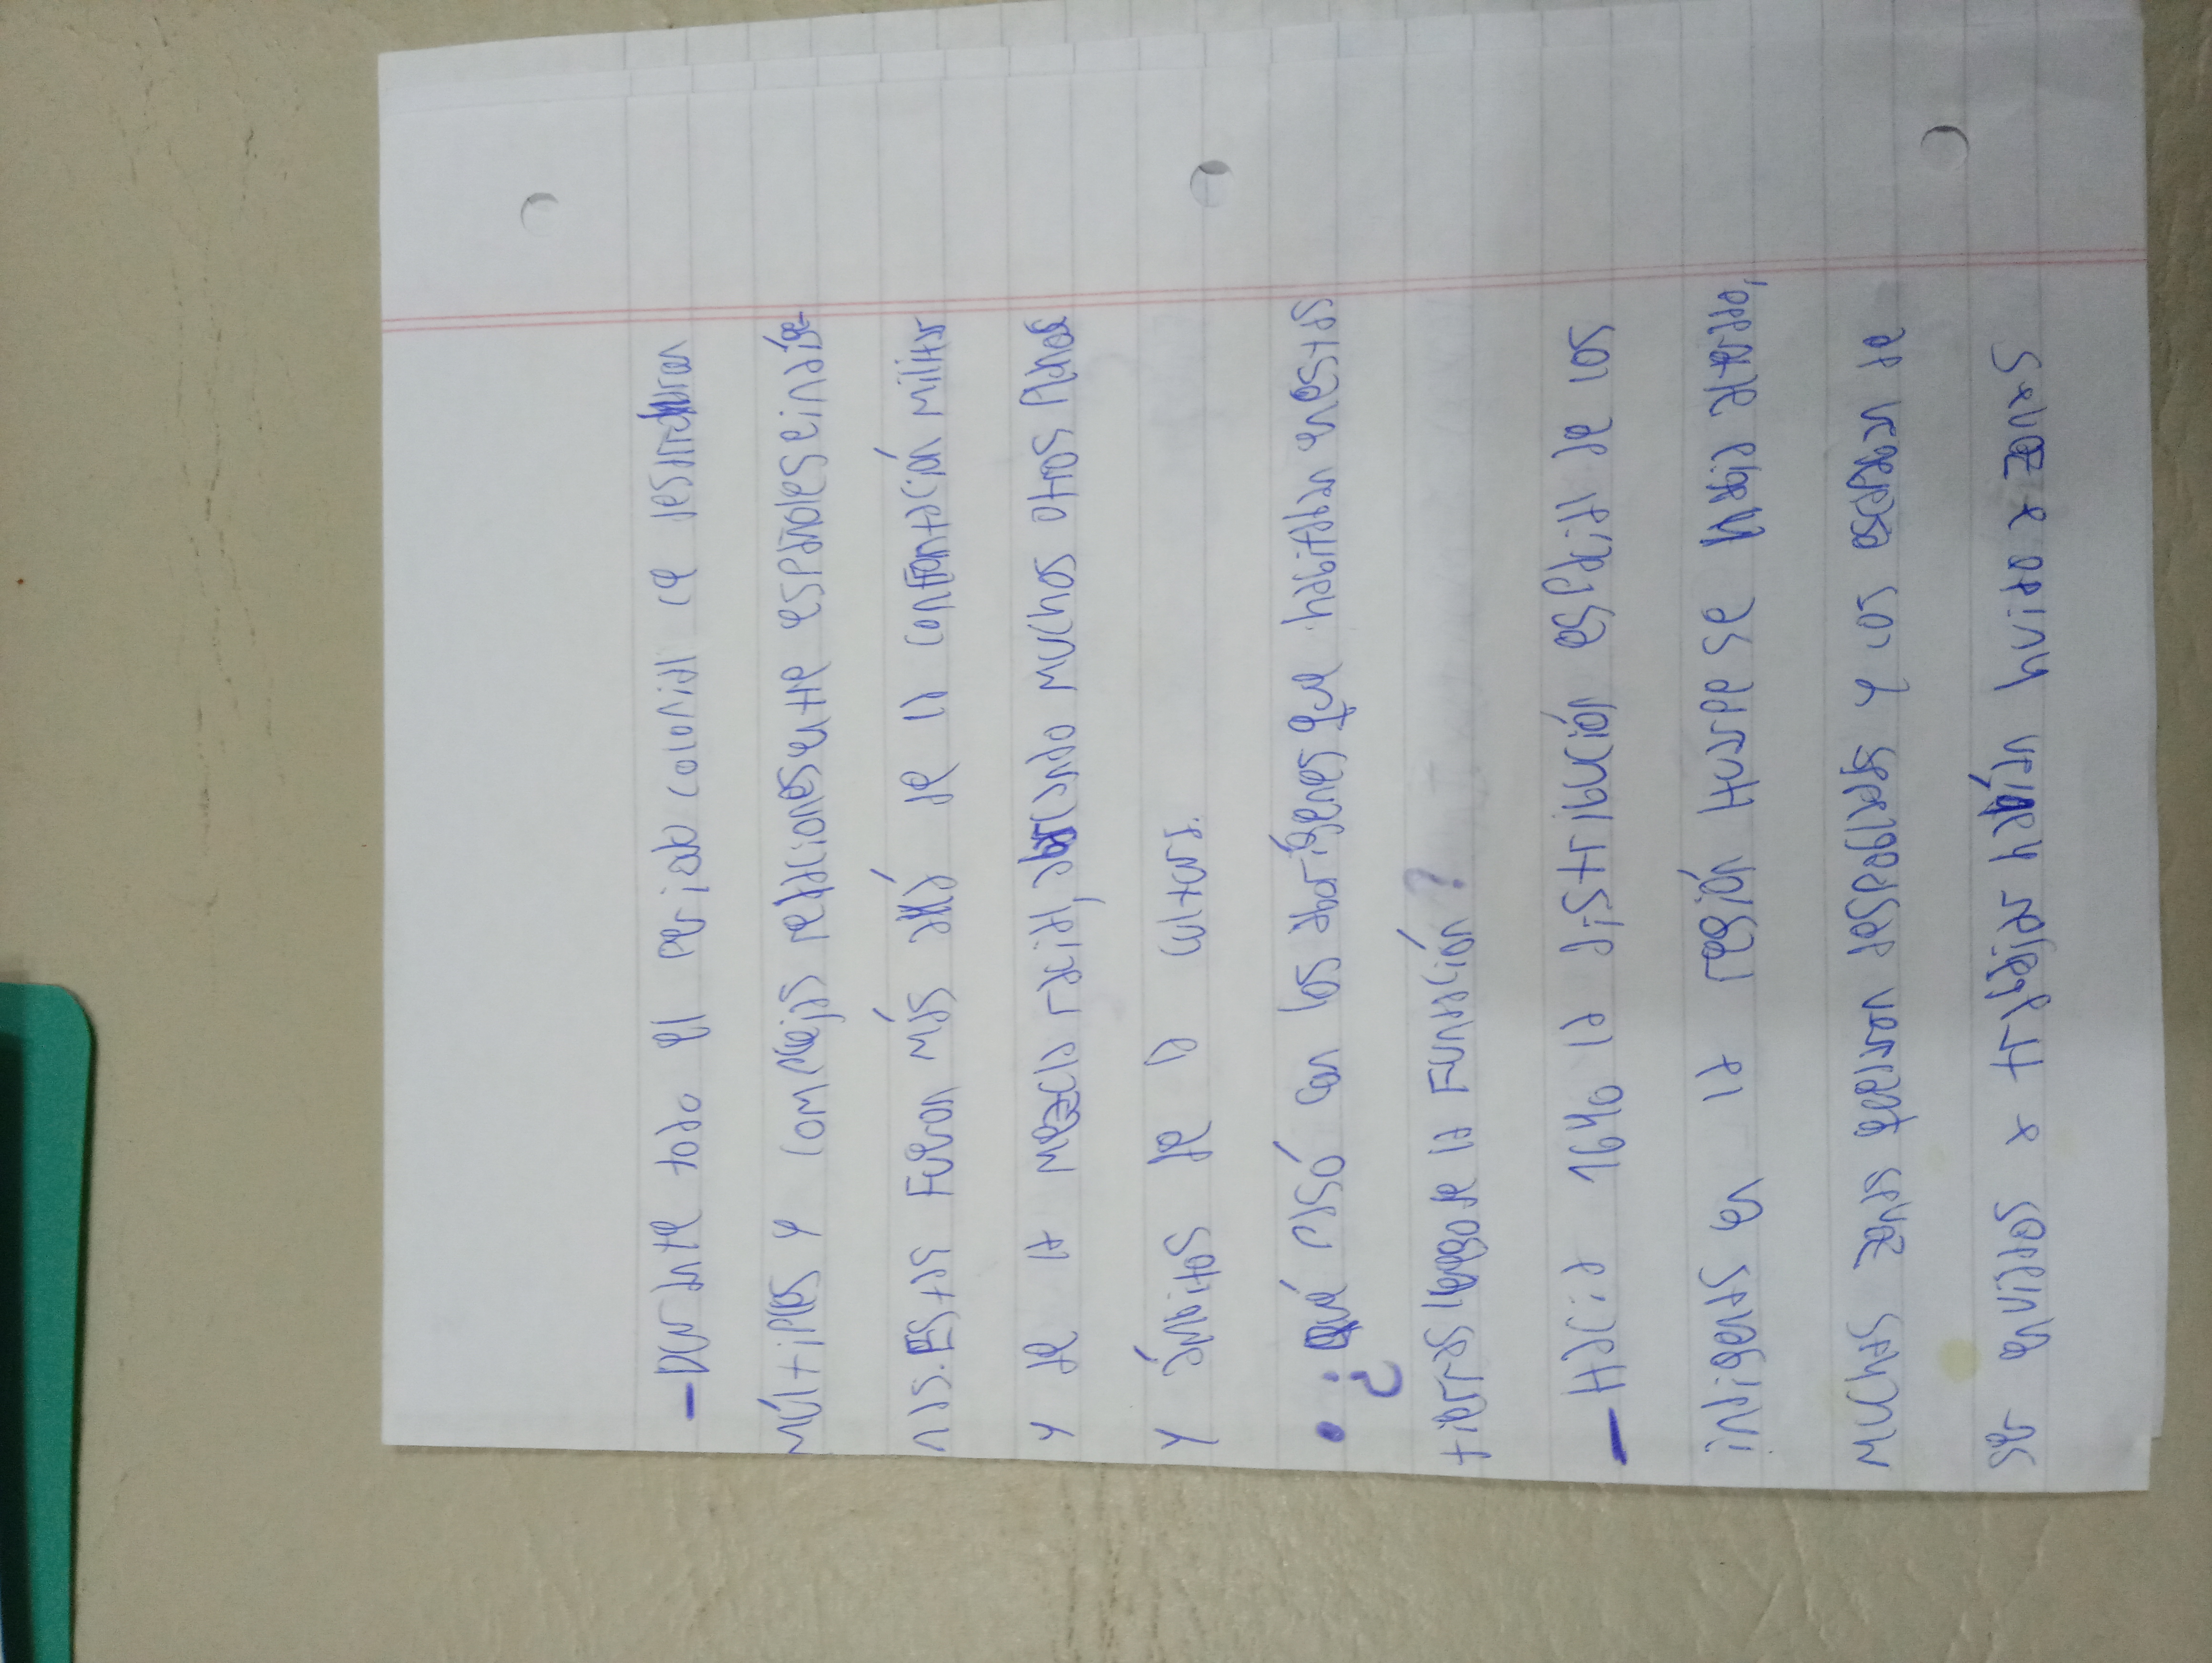 -Durante todo el periodo colonial se desarrollaron
múltiples y complejas relaciones entre españoles e indíge-
nas. Estas fueron más allá de la confrontación militar
y de la mezcla racial, abarcando muchos otros planos
y ámbitos de la cultura.
• ¿Qué pasó con los aborígenes que habitaban nuestras
tierras luego de la fundación?
-Hacia 1640 la distribución espacial de los
indígenas en la región Huarpe se había alterado,
muchas veces encerrados despoblados y los
ser enviados a trabajar habían huido a zonas